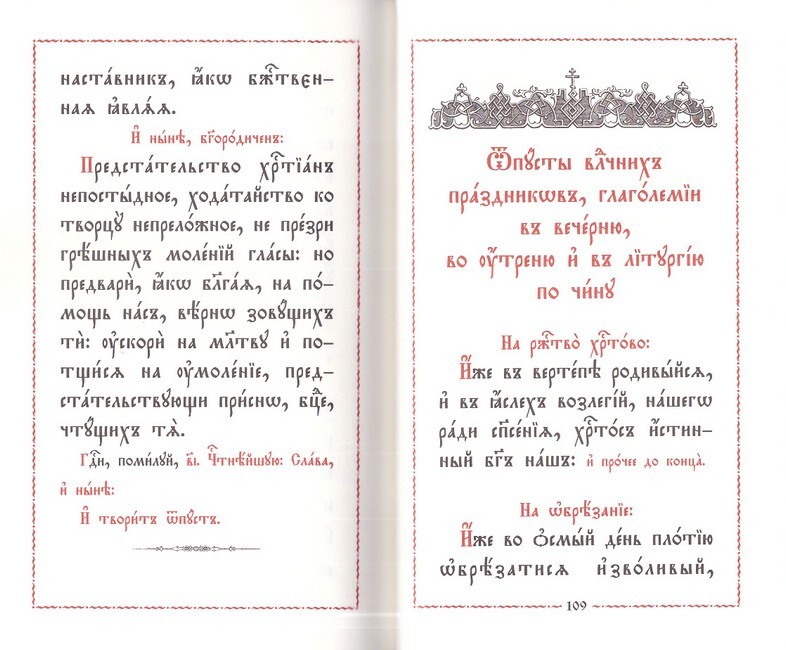 наста́вникъ, ꙗ҆́кѡ бж҃твен-
ная ꙗ҆влѧ́ѧ.
И҆ ны́нѣ, бг҃оро́диченъ:
Предста́тельство хрⷭ҇тїа́нъ
непосты́дное, хода́тайство ко
творцꙋ̀ непрело́жное, не пре́зри
грѣ́шныхъ моле́нїй гла́сы: но
предварѝ, ꙗ҆́кѡ бл҃га́ѧ, на по́-
мощь на́съ, вѣ́рнѡ зовꙋ́щихъ
тѝ: оу҆скорѝ на мл҃твꙋ и҆ по-
тщи́сѧ на оу҆моле́нїе, пред-
ста́тельствꙋющи при́снѡ, бц҃е,
чтꙋ́щихъ тѧ̀.
Гдⷭ҇и, поми́лꙋй, в҃і. Чⷭ҇тнѣ́йшꙋю: Сла́ва,
и҆ ны́нѣ:
И҆ твори́тъ ѿпꙋ́стъ.
Ѿпꙋсты влⷣчнихъ
пра́здникѡвъ, глаго́лемїи
въ вече́рню,
во оу҆́треню и҆ въ лїтꙋргі́ю
по чи́нꙋ
На ржⷭ҇тво̀ хрⷭ҇то́во:
И҆́же въ верте́пѣ роди́выйсѧ,
и҆ въ ꙗ҆́слехъ возлегі́й, на́шегѡ
ра́ди сп҃се́нїѧ, хрⷭ҇то́съ и҆́стин-
ный бг҃ъ на́шъ: и҆ про́чее до конца̀.
На ѡ҆брѣ́занїе:
И҆́же во ѻ҆смы́й де́нь пло́тїю
ѡ҆брѣ́затисѧ и҆зво́ливый,
109